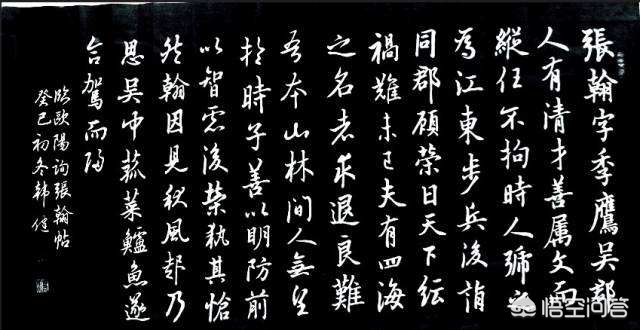 張翰字季鷹吳郡
人有清才善属文而
縱任不拘時人號之
為江東步兵後謂
同郡顧榮曰天下紜
禍難未已夫有四海
之名者求退良難
吾本山林間人無望
於時子善以明防前
以智慮後榮執其愴
然翰因見秋風起乃
思吳中菰菜鱸魚遂
命駕而歸
臨歐陽詢張翰帖
癸巳初冬韓健
悟空问答